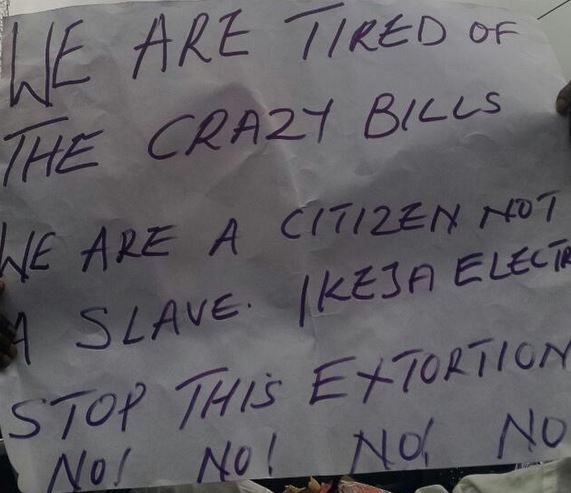 WE ARE TIRED OF
THE CRAZY BILLS
WE ARE A CITIZEN NOT
A SLAVE. IKEJA ELECTR
STOP THIS EXTORTION
NO! NO! NO! NO